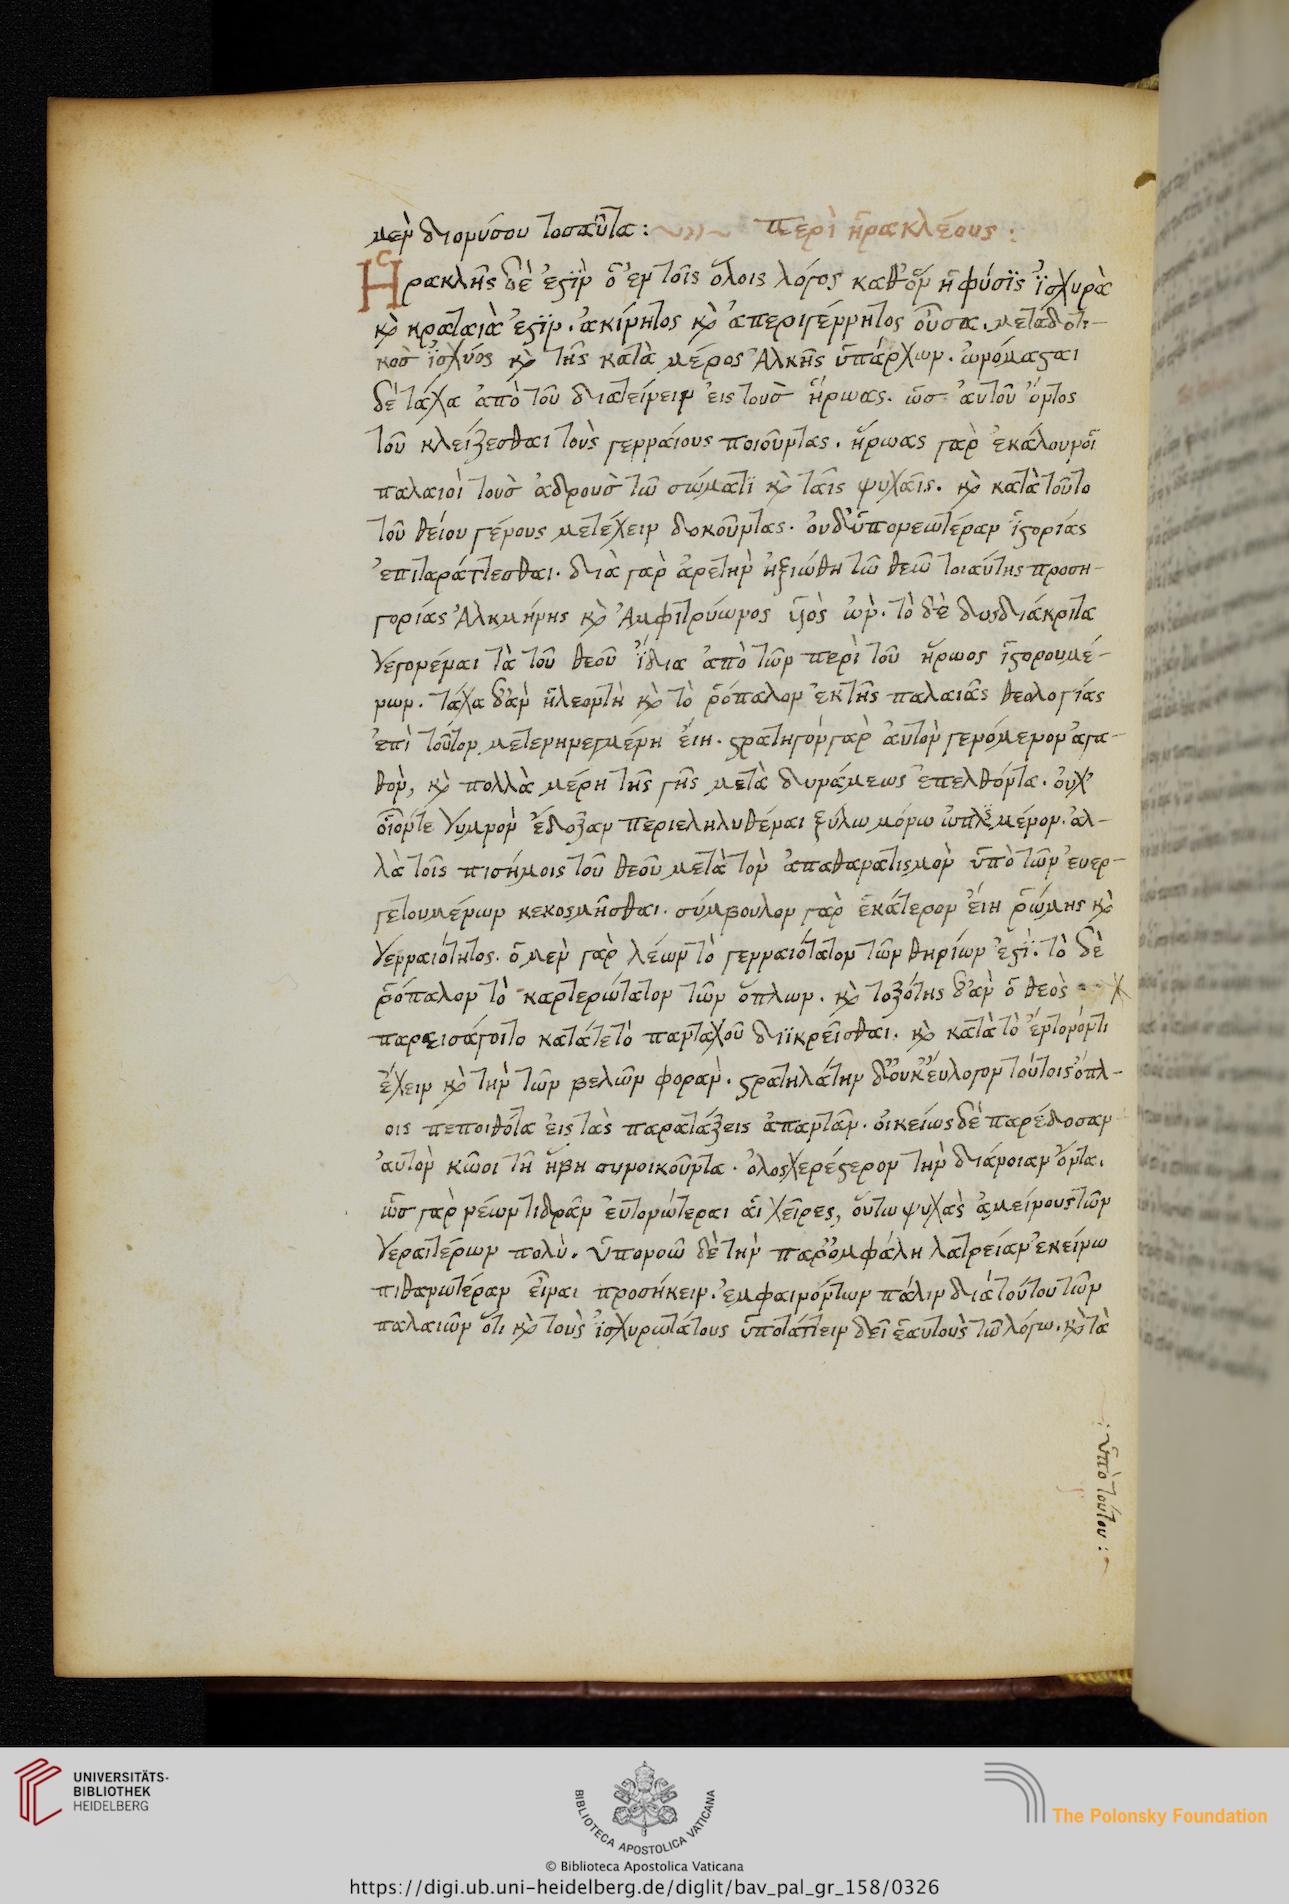 μὲν διονύσου τοσαῦτα: περὶ ἡρακλέους:
Ἡρακλῆς δέ ἐστὶν ὁ ἐν τοῖς ὅλοις λόγος καθ' ὃν ἡ φύσϊς ἰσχυρὰ
κ̀ κραταιὰ ἐστὶν. ἀκίνητος κ̀ ἀπεριγέννητος οὖσα. μεταδοτι-
κοσ ἰσχύος κ̀ τῆς κατὰ μέρος Ἀλκῆς ὑπάρχων. ὠνόμασται
δὲ τάχα ἀπὸ τοῦ διατείνειν εἰς τουσ ἥρωας. ὡσ αὐτοῦ ὄντος
τοῦ κλείζεσθαι τοὺς γενναίους ποιοῦντας. ἥρωας γαρ ἐκάλουν οἱ
παλαιοὶ τουσ ἁδρουσ τῶ σώματϊ κ̀ ταῖς ψυχαῖς. κ̀ κατὰ τοῦτο
τοῦ θείου γένους μετέχειν δοκοῦντας. οὐδ' ὑπονεωτέραν ἱστορίας
ἐπιταράττεσθαι. διὰ γαρ ἀρετὴν ἠξιώθη τῶ θεῶ τοιαύτης προση-
γορίας Ἀλκμήνης κ̀ Ἀμφιτρύωνος υἱὸς ὤν. τὸ δὲ δυσδιάκριτα
γεγονέναι τὰ τοῦ θεοῦ ἴδια ἀπὸ τῶν περὶ τοῦ ἥρωος ἱστορουμέ-
νων. τάχα δ' ἂν ἡ λεοντὴ κ̀ τὸ ῥόπαλον ἐκ τῆς παλαιᾶς θεολογίας
ἐπὶ τοῦτον μετενηνεγμένη εἴη. στρατηγὸν γαρ αὐτὸν γενόμενον ἀγα-
θὸν, κ̀ πολλὰ μέρη τῆς γῆς μετὰ δυνάμεως ἐπελθόντα. οὐχ'
οἷόντε γυμνὸν ἔδοξαν περιεληλυθέναι ξύλω μόνω ὡπλισμένον. ἀλ-
λὰ τοῖς πισήμοις τοῦ θεοῦ μετὰ τὸν ἀπαθανατισμὸν ὑπὸ τῶν εὐερ-
γετουμένων κεκοσμῆσθαι. σύμβουλον γαρ ἑκάτερον εἴη ῥώμης κ̀
γενναιότητος. ὁ μὲν γαρ λέων τὸ γενναιότατον τῶν θηρίων ἐστὶ. τὸ δὲ
ῥόπαλον τὸ καρτερώτατον τῶν ὅπλων. κ̀ τοξότης δ' ἂν ὁ θεὸς
παρεισάγοιτο κατάτε τὸ πανταχοῦ διϊκνεῖσθαι. κ̀ κατὰ τὸ ἔντονόν τι
ἔχειν κ̀ τὴν τῶν βελῶν φορὰν. στρατηλάτην δ' οὐκ εὔλογον τούτοις ὅπλ-
οις πεποιθότα εἰς τὰς παρατάξεις ἀπαντᾶν. οἰκείως δὲ παρέδοσαν
αὐτὸν κῶοι τῆ ἥβη συνοικοῦντα. ὁλοσχερέστερον τὴν διάνοιαν ὄντα.
ὡσ γαρ νέων τι δρᾶν εὐτονώτεραι αἱ χεῖρες, οὕτω ψυχὰς ἀμείνους τῶν
γεραιτέρων πολύ. ὑπονοῶ δὲ τὴν παρ' ὀμφάλη λατρείαν ἐκείνω
πιθανωτέραν εἶναι προσήκειν. ἐμφαινόντων πάλιν διὰ τούτου τῶν
παλαιῶν ὅτι κ̀ τοὺς ἰσχυρωτάτους ὑποτάττειν δεῖ ἑαυτοὺς τῶ λόγω. κ̀ τὰ
: ὑπὸ τούτου :
UNIVERSITÄTS-
BIBLIOTHEK
HEIDELBERG
BIBLIOTECA APOSTOLICA VATICANA
The Polonsky Foundation
© Biblioteca Apostolica Vaticana
https://digi.ub.uni-heidelberg.de/diglit/bav_pal_gr_158/0326